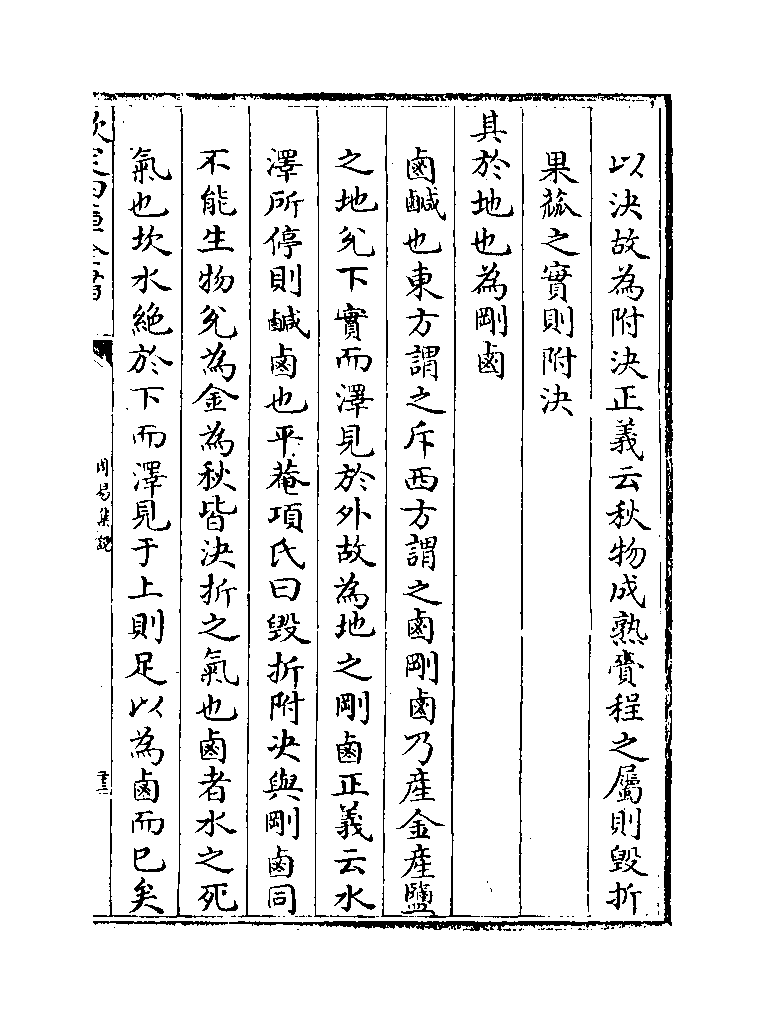 以決故為附決正義云秋物成熟𦾔程之屬則毀折
果蓏之實則附決
其於地也為剛鹵
鹵鹹也東方謂之斥西方謂之鹵剛鹵乃產金產鹽
之地兊下實而澤見於外故為地之剛鹵正義云水
澤所停則鹹鹵也平菴項氏曰毀折附決與剛鹵同
不能生物兊為金為秋皆決折之氣也鹵者水之死
氣也坎水絶於下而澤見于上則足以為鹵而已矣
欽定四庫全書
周易集說